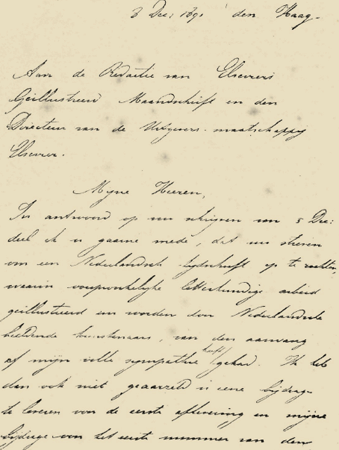 8 Dec: 1890 den Haag.
Aan de Redactie van Elsevier's
Geïllustreerd Maandschrift en den
Directeur van de Uitgevers-maatschappy
Elsevier.
Myne Heeren,
In antwoord op uw schryven van 5 Dec:
deel ik u gaarne mede, dat uw streven
om een Nederlandsch tydschrift op te richten,
waarin oorspronkelyke letterkundige arbeid
geïllustreerd zou worden door Nederlandsche
beeldende kunstenaars, van den aanvang
af mijn volle sympathie heeft gehad. Ik heb
dan ook niet geaarzeld u eene bydrage
te leveren voor de eerste aflevering en mijne
bydrage van het eerste nummer van den